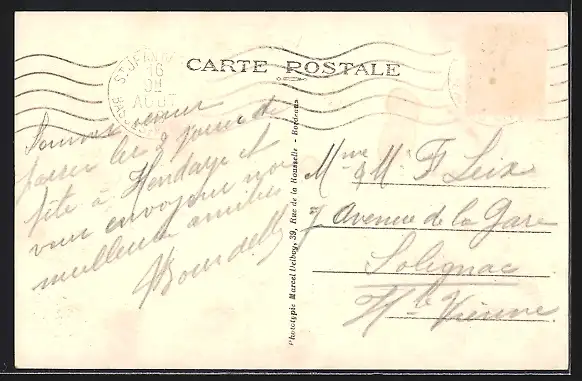 CARTE POSTALE
ST-JEAN
16
AOUT
Sommes venus
passer les 2 jours de
fête à Hendaye et
vous envoyons nos
meilleures amitiés
Bourdell
Phototypie Marcel Delboy, 39, Rue de la Rousselle - Bordeaux
Mme & M. F. Leix
7 Avenue de la Gare
Solignac
Hte Vienne